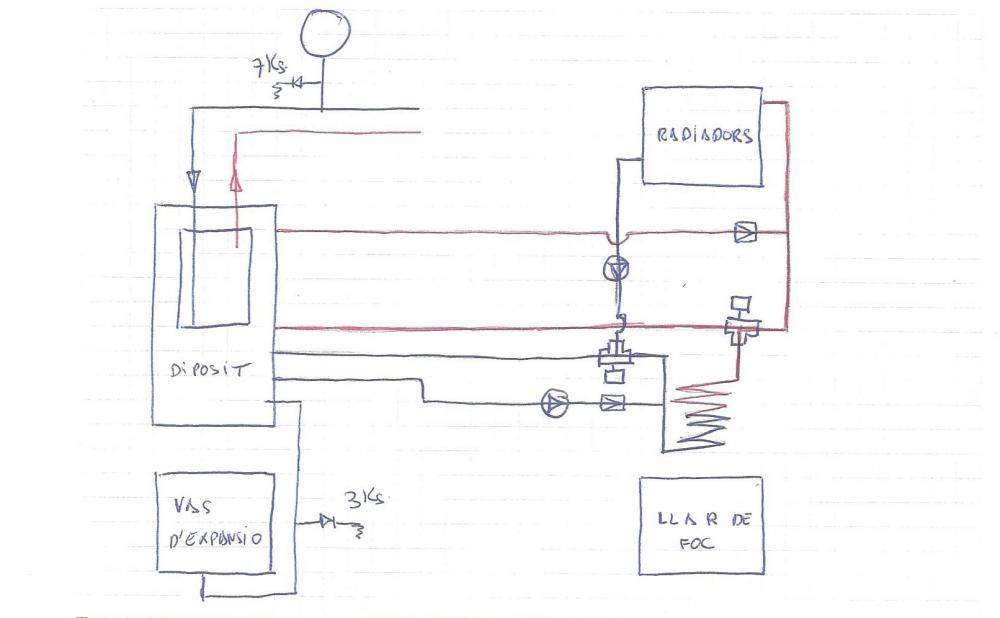 7Ks
RADIADORS
DIPOSIT
VAS
D'EXPANSIO
3Ks
LLAR DE
FOC